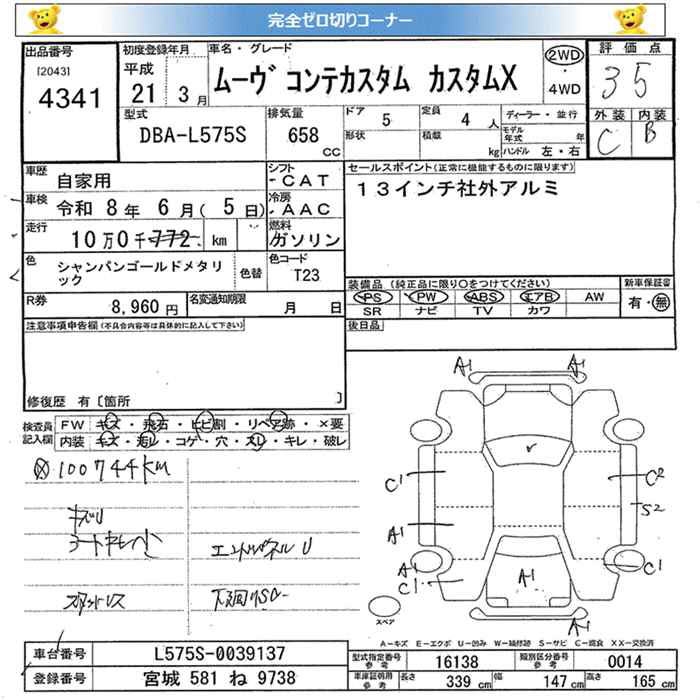 完全ゼロ切りコーナー
出品番号
[2043]
4341
初度登録年月
平成
21 3月
車名・グレード
ムーヴ コンテカスタム カスタムX
2WD
・
4WD
評価点
35
外装 内装
C B
型式
DBA-L575S
排気量
658
CC
ドア 5
形状
定員 4 人
積載 kg
ディーラー・並行
モデル年式 年
ハンドル 左・右
車歴
自家用
シフト
CAT
車検
令和 8年 6月( 5日)
冷房
AAC
走行
10万0千772 km
燃料
ガソリン
色
シャンパンゴールドメタリック
色替
色コード
T23
R券
8,960 円
名変通知期限
月 日
セールスポイント(正常に機能するものに限ります)
13インチ社外アルミ
装備品(純正品に限り○をつけてください)
PS PW ABS エアB AW
SR ナビ TV カワ
新車保証書
有・無
後日品
注意事項申告欄(不具合内容等は具体的に記入して下さい)
修復歴 有〔箇所 〕
検査員記入欄
FW キズ・飛石・ヒビ割・リペア跡・×要
内装 キズ・汚レ・コゲ・穴・スレ・キレ・破レ
100744KM
キズU
シートキレ小
エンドパネルU
スタットレス
下廻りSC-
A1
A1
C1
C2
S2
A1
A1
C1
A1
C1
スペア
A=キズ E=エクボ U=凹み W=補修跡 S=サビ C=腐食 XX=交換済
車台番号 L575S-0039137
登録番号 宮城 581 ね 9738
型式指定番号参考 16138
類別区分番号参考 0014
車庫証明用参考 長さ 339 cm 幅 147 cm 高さ 165 cm